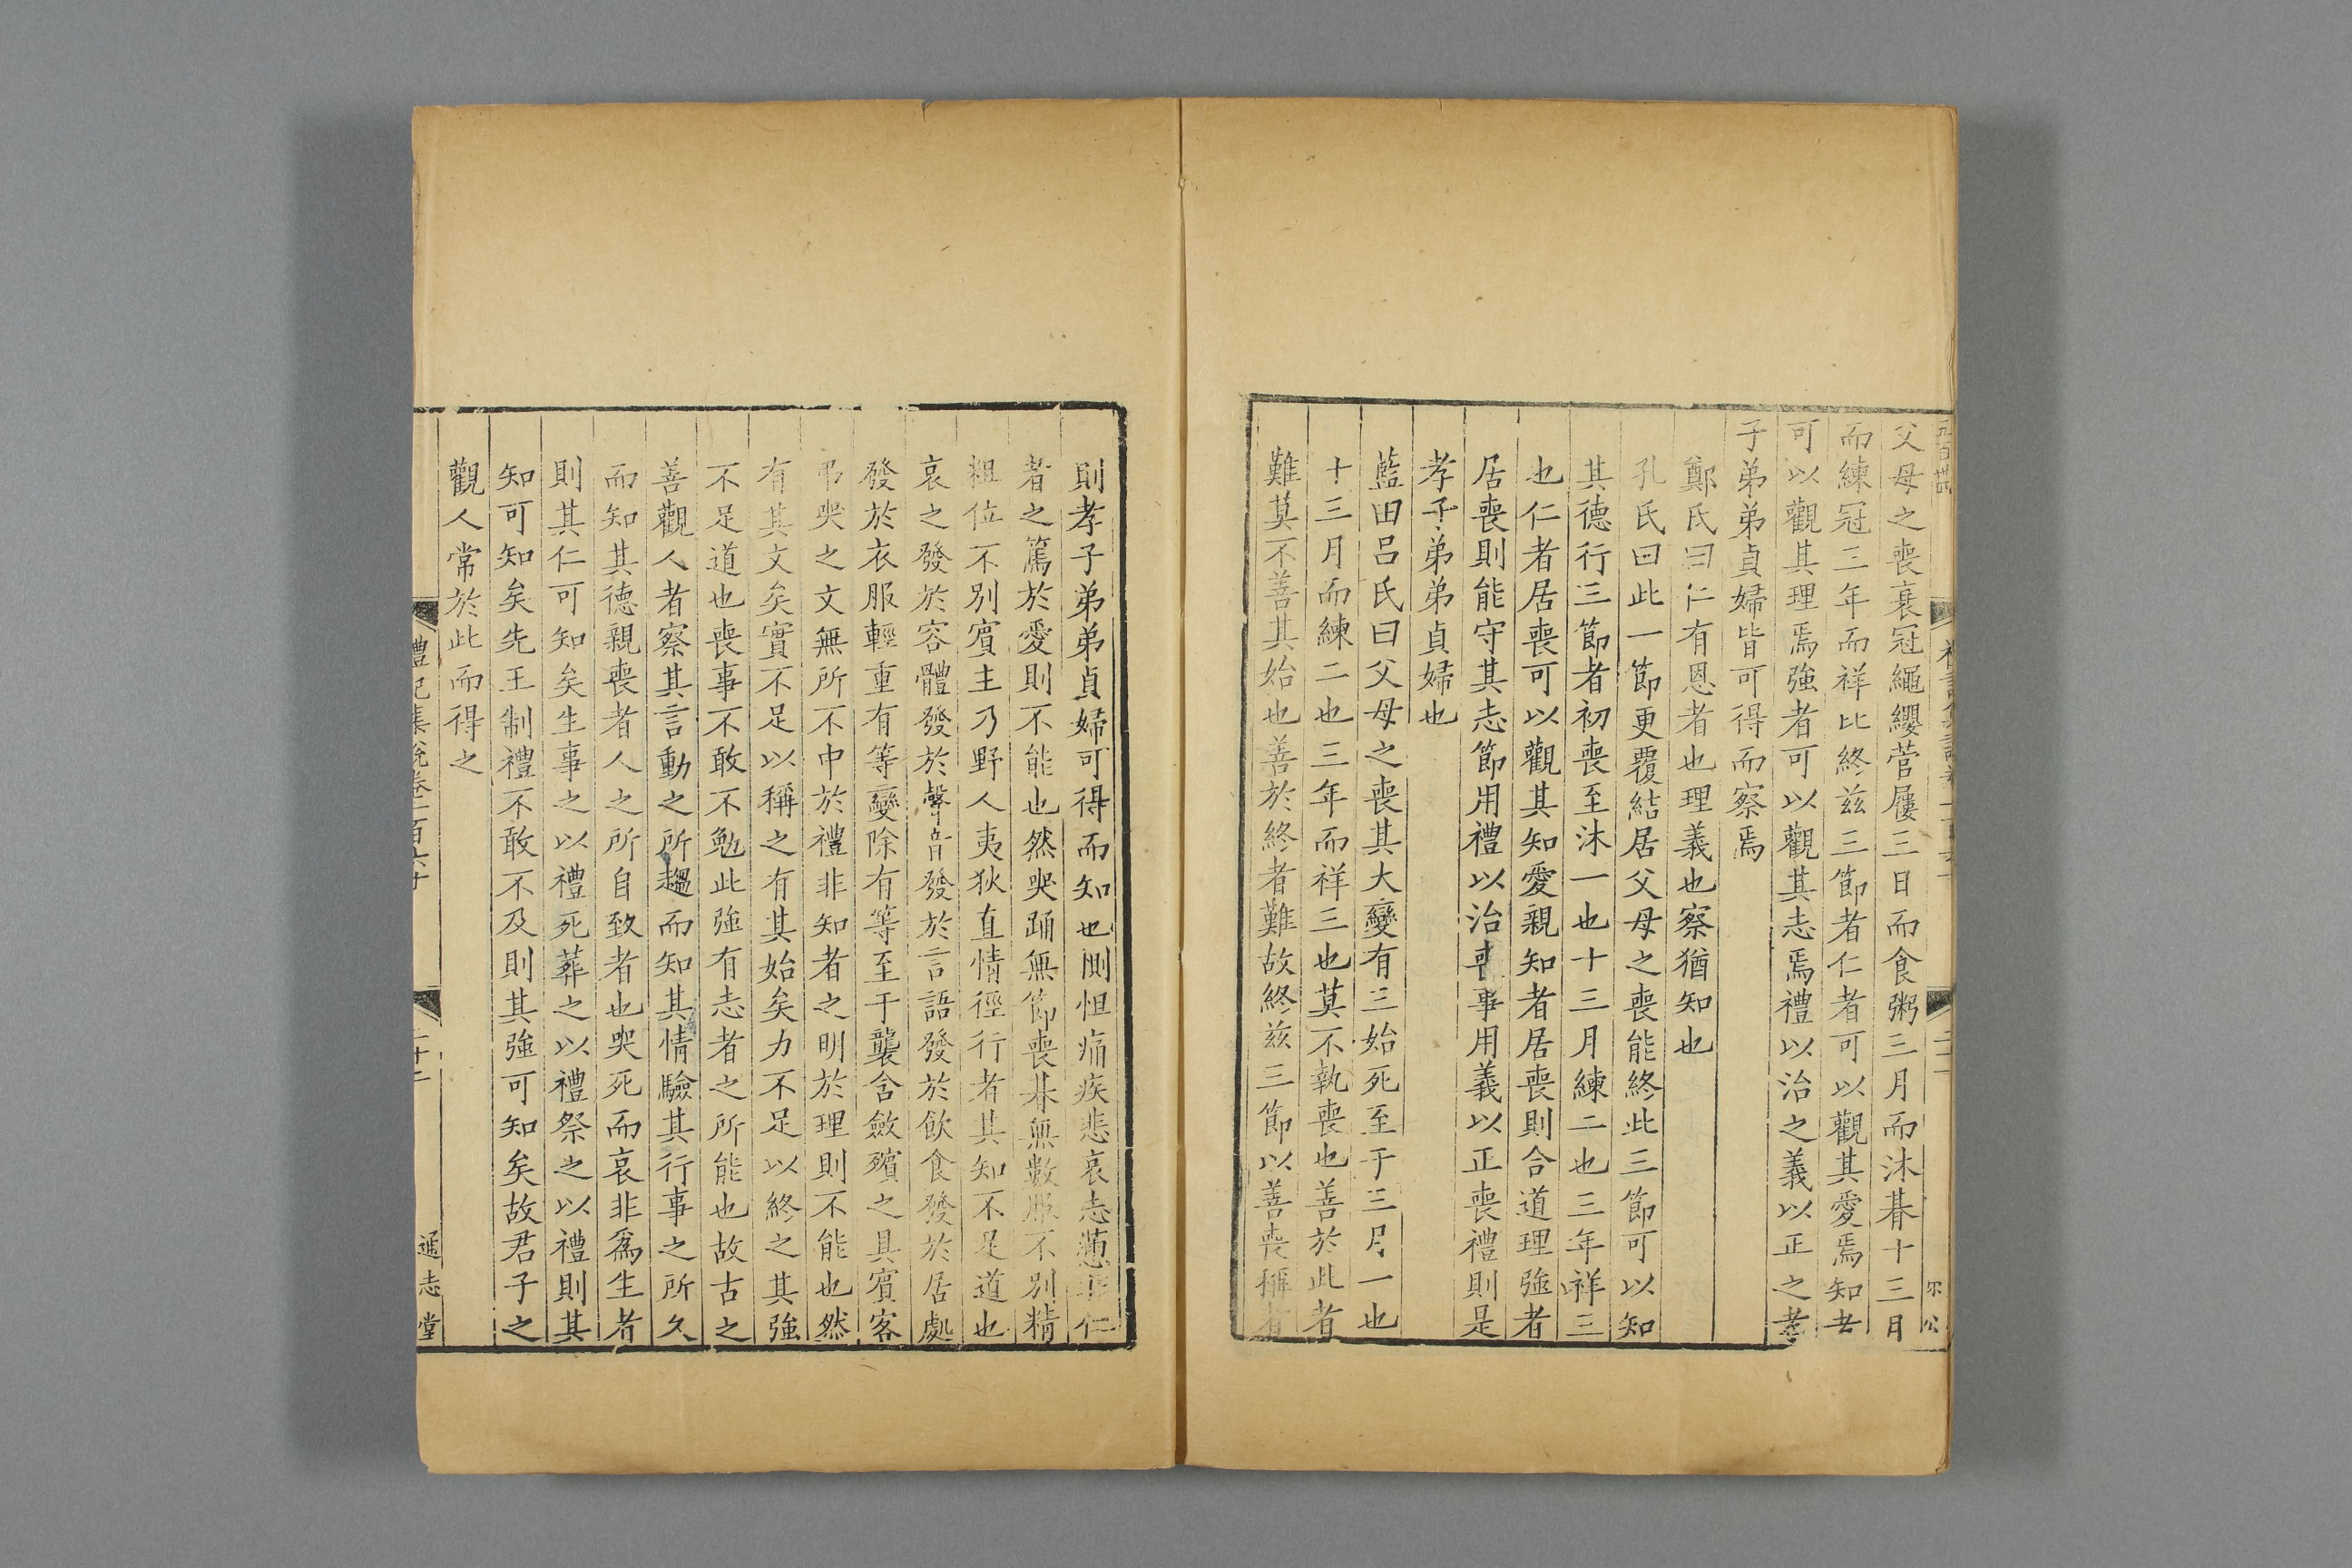 父母之喪衰冠繩纓菅屨三日而食粥三月而沐朞十三月
而練冠三年而祥比終茲三節者仁者可以觀其愛焉知者
可以觀其理焉強者可以觀其志焉禮以治之義以正之孝
子弟弟貞婦皆可得而察焉
鄭氏曰仁有恩者也理義也察猶知也
孔氏曰此一節更覆結居父母之喪能終此三節可以知
其德行三節者初喪至沐一也十三月練二也三年祥三
也仁者居喪可以觀其知愛親知者居喪則合道理強者
居喪則能守其志節用禮以治喪事用義以正喪禮則是
孝子弟弟貞婦也
藍田呂氏曰父母之喪其大變有三始死至于三月一也
十三月而練二也三年而祥三也莫不執喪也善於此者
難莫不善其始也善於終者難故終茲三節以善喪稱者
則孝子弟弟貞婦可得而知也惻怛痛疾悲哀志懣非仁
者之篤於愛則不能也然哭踊無節喪朞無數服不別精
粗位不別賓主乃野人夷狄直情徑行者其知不足道也
哀之發於容體發於聲音發於言語發於飲食發於居處
發於衣服輕重有等變除有等至于襲含斂殯之具賓客
弔哭之文無所不中於禮非知者之明於理則不能也然
有其文矣實不足以稱之有其始矣力不足以終之其強
不足道也喪事不敢不勉此強有志者之所能也故古之
善觀人者察其言動之所趨而知其情驗其行事之所久
而知其德親喪者人之所自致者也哭死而哀非爲生者
則其仁可知矣生事之以禮死葬之以禮祭之以禮則其
知可知矣先王制禮不敢不及則其強可知矣故君子之
觀人常於此而得之
禮記集說卷一百六十
二十二
通志堂